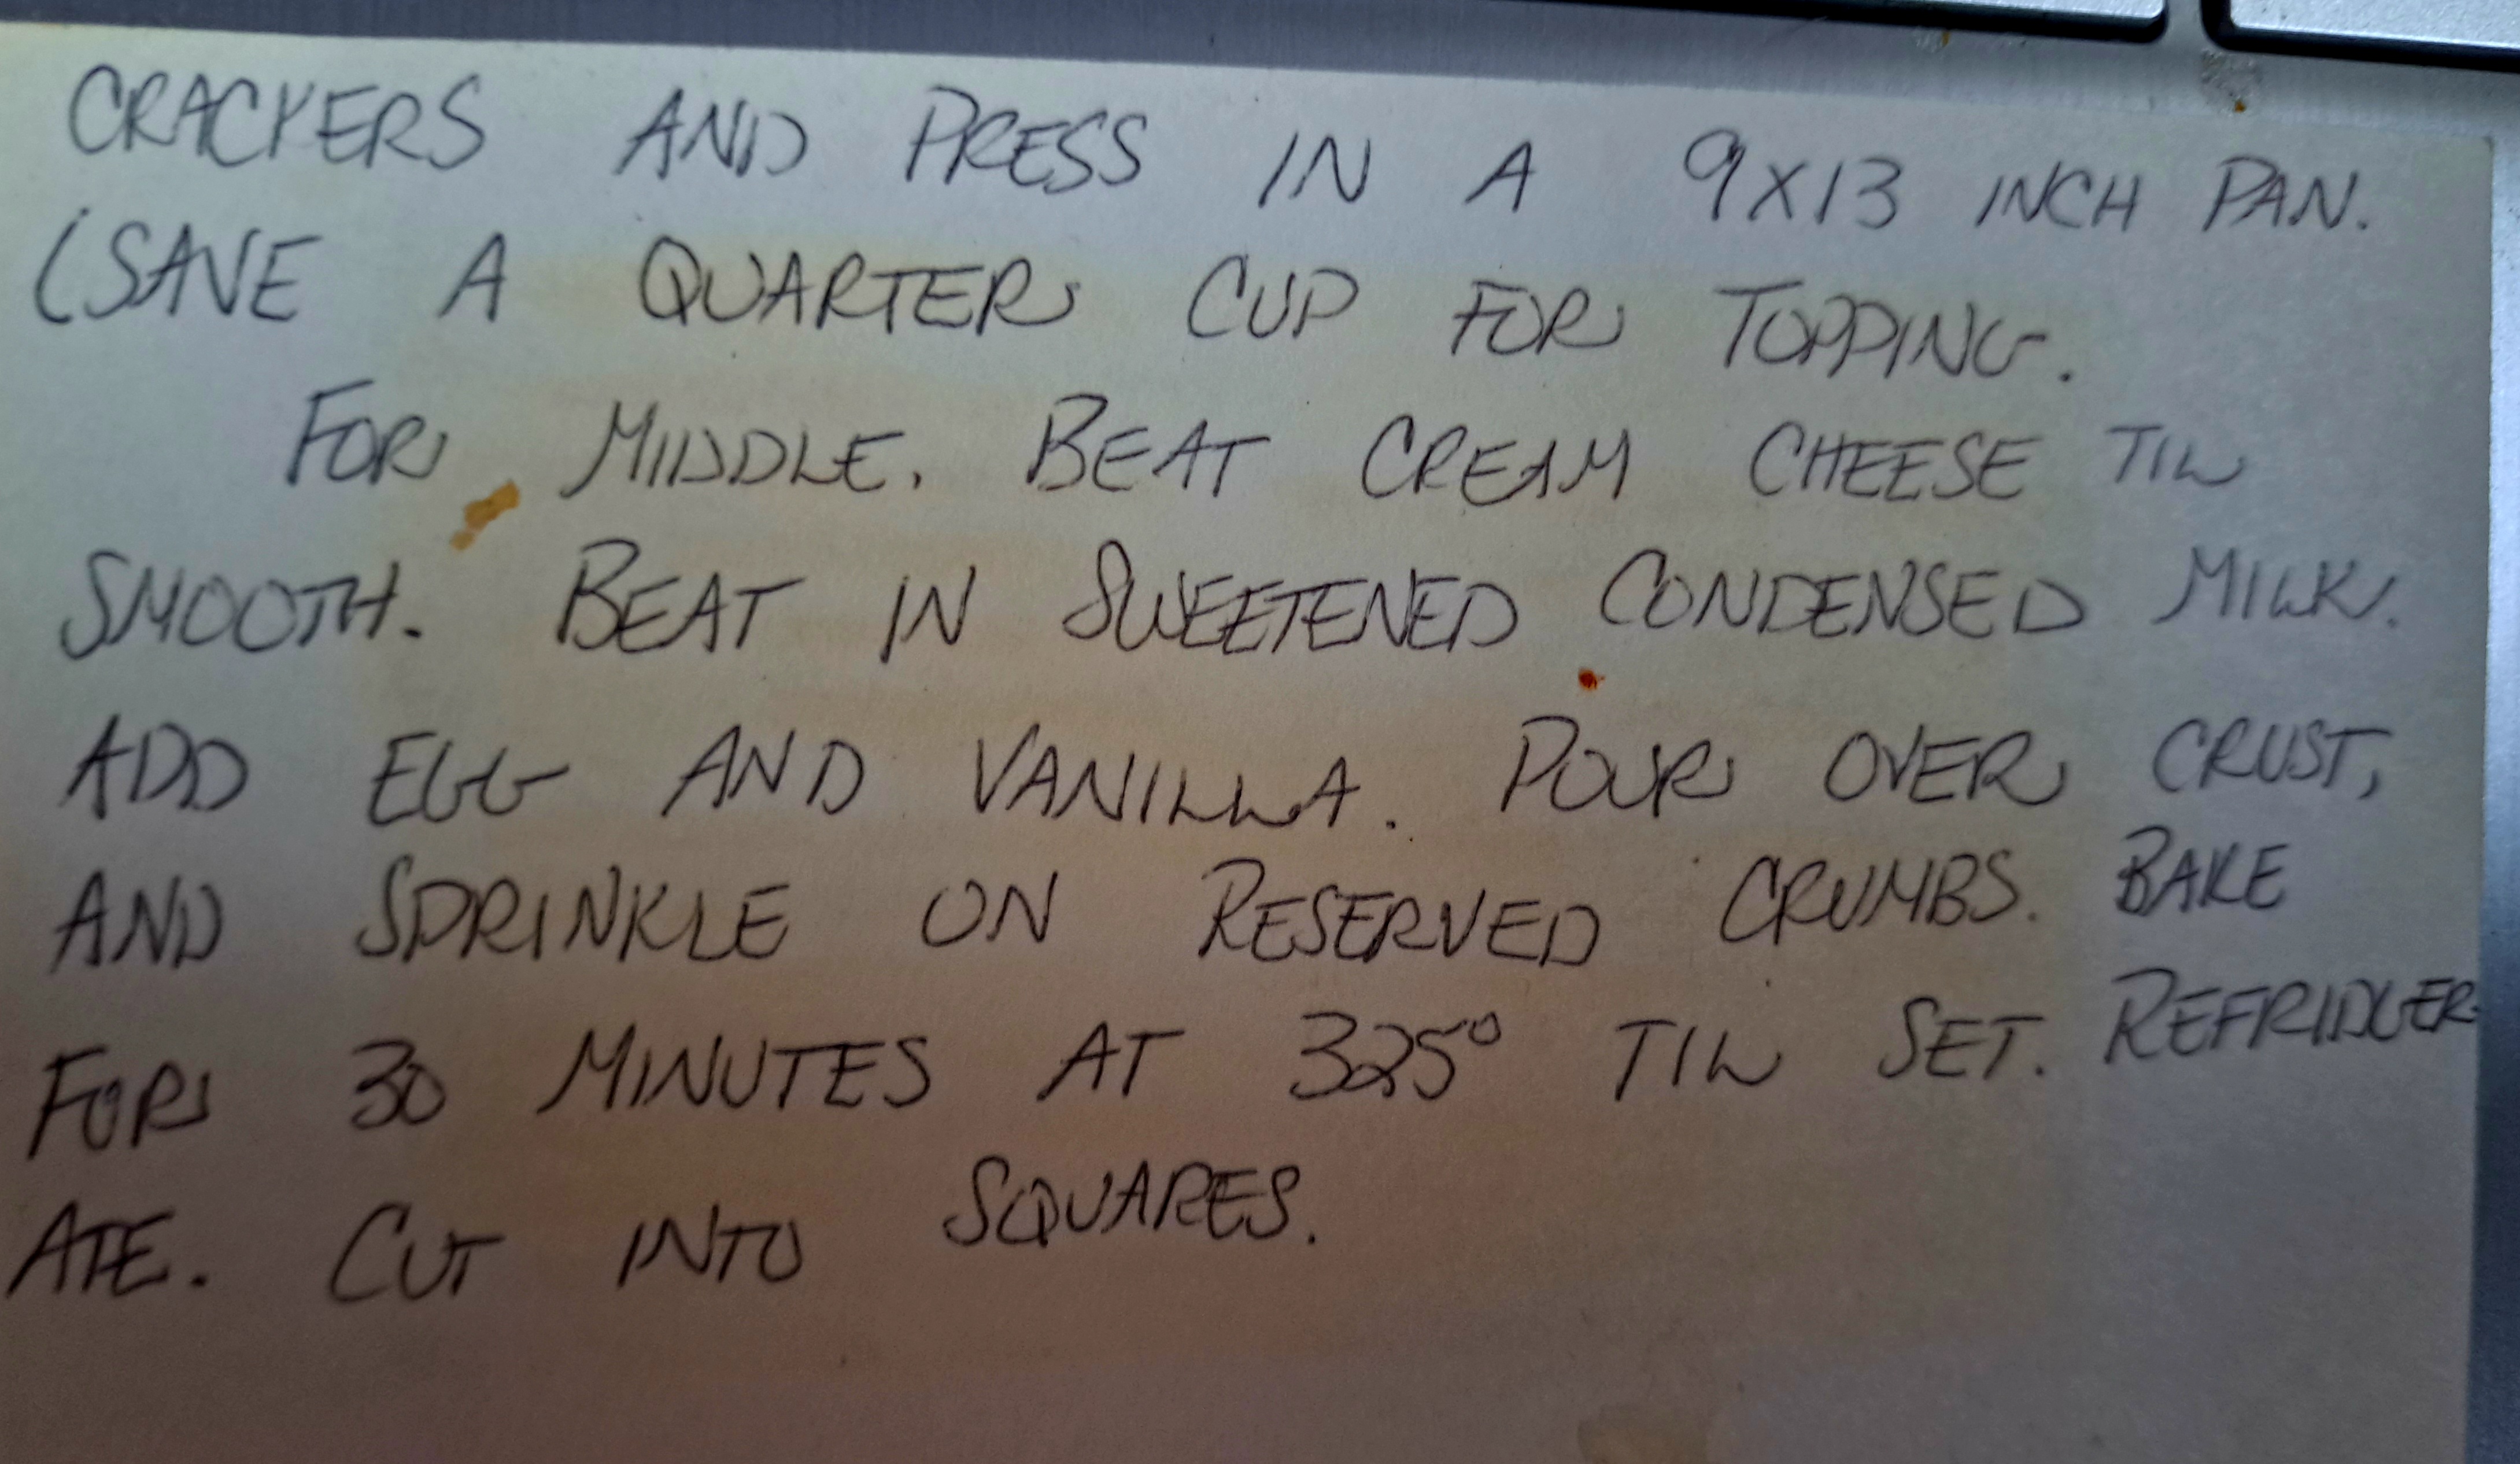 CRACKERS AND PRESS IN A 9X13 INCH PAN.
(SAVE A QUARTER CUP FOR TOPPING.
FOR MIDDLE. BEAT CREAM CHEESE TIL
SMOOTH. BEAT IN SWEETENED CONDENSED MILK.
ADD EGG AND VANILLA. POUR OVER CRUST,
AND SPRINKLE ON RESERVED CRUMBS. BAKE
FOR 30 MINUTES AT 325° TIL SET. REFRIDGER-
ATE. CUT INTO SQUARES.